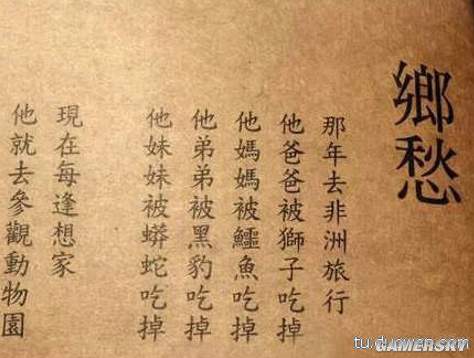 鄉愁
那年去非洲旅行
他爸爸被獅子吃掉
他媽媽被鱷魚吃掉
他弟弟被黑豹吃掉
他妹妹被蟒蛇吃掉
現在每逢想家
他就去參觀動物園
tu.duowan.com
GAMERSKY